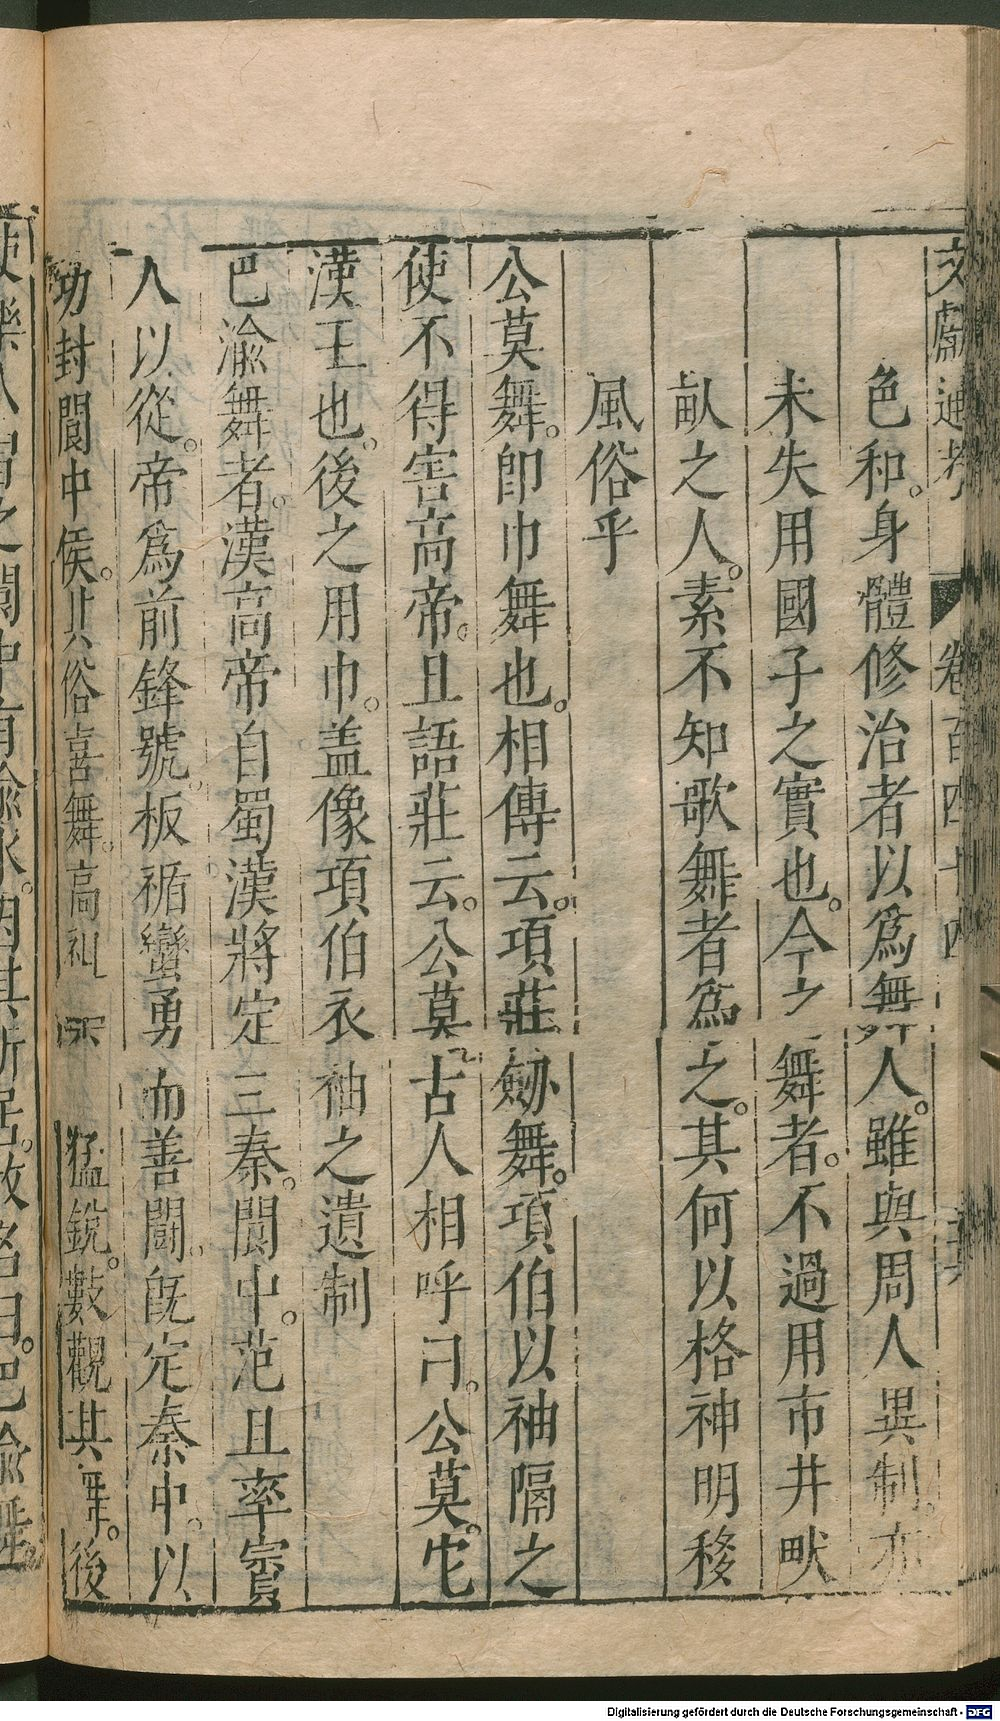 文獻通考 卷百四十四
色和。身體修治者以爲舞人。雖與周人異制。亦
未失用國子之實也。今之舞者。不過用市井畎
畝之人。素不知歌舞者爲之。其何以格神明移
風俗乎
公莫舞。卽巾舞也。相傳云。項莊劔舞。項伯以袖隔之
使不得害高帝。且語莊云。公莫古人相呼曰。公莫。
漢王也。後之用巾。盖像項伯衣袖之遺制
巴渝舞者。漢高帝自蜀漢將定三秦。閬中。范且率賨
人以從。帝爲前鋒號。板楯蠻勇而善鬬。旣定秦中。以
功封閬中侯。其俗喜舞。高 猛銳。數觀其舞。後
Digitalisierung gefördert durch die Deutsche Forschungsgemeinschaft - DFG